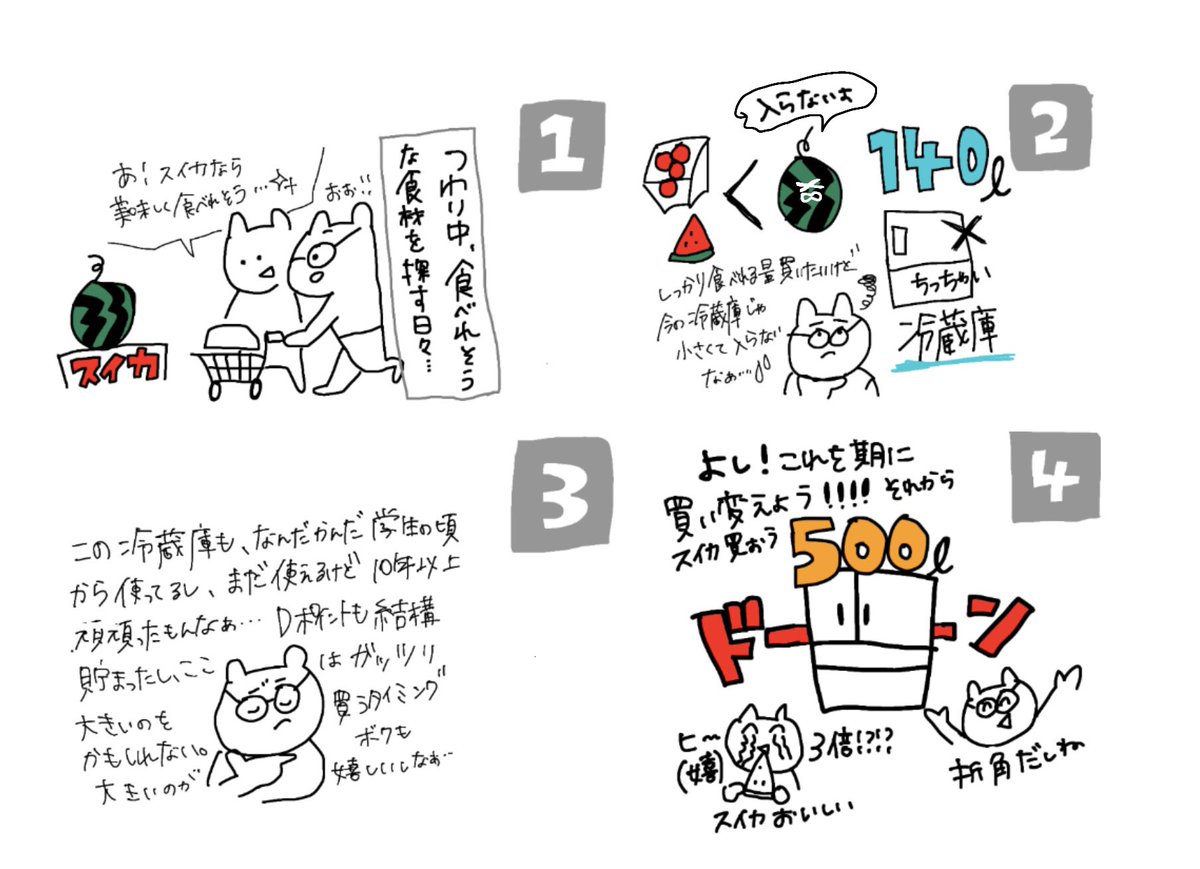 1
つわり中、食べれそう
な食材を探す日々…
あ!スイカなら
美味しく食べれそう…
おぉ!!
スイカ
2
入らないよ
140ℓ
ちっちゃい
冷蔵庫
しっかり食べれる量買いたいけど
今の冷蔵庫じゃ
小さくて入らない
なぁ…
3
この冷蔵庫も、なんだかんだ学生の頃
から使ってるし、まだ使えるけど10年以上
頑張ったもんなぁ… Dポイントも結構
貯まったし、ここはガッツリ
大きいのを買うタイミング
かもしれない。ボクも
大きいのが嬉しいしなぁ…
4
よし!これを期に
買い変えよう!!!!それから
スイカ買おう
500ℓ
ドーーン
ヒ〜
(嬉)
3倍!?!?
スイカおいしい
折角だしね